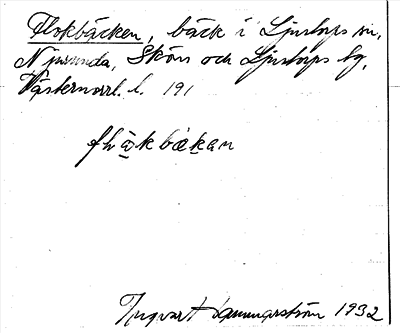 Flokbäcken, bäck i Ljustorps sn,
Njurunda, Sköns och Ljustorps tg,
Västernorrl. l. 191
Ingvart Hammarström 1932